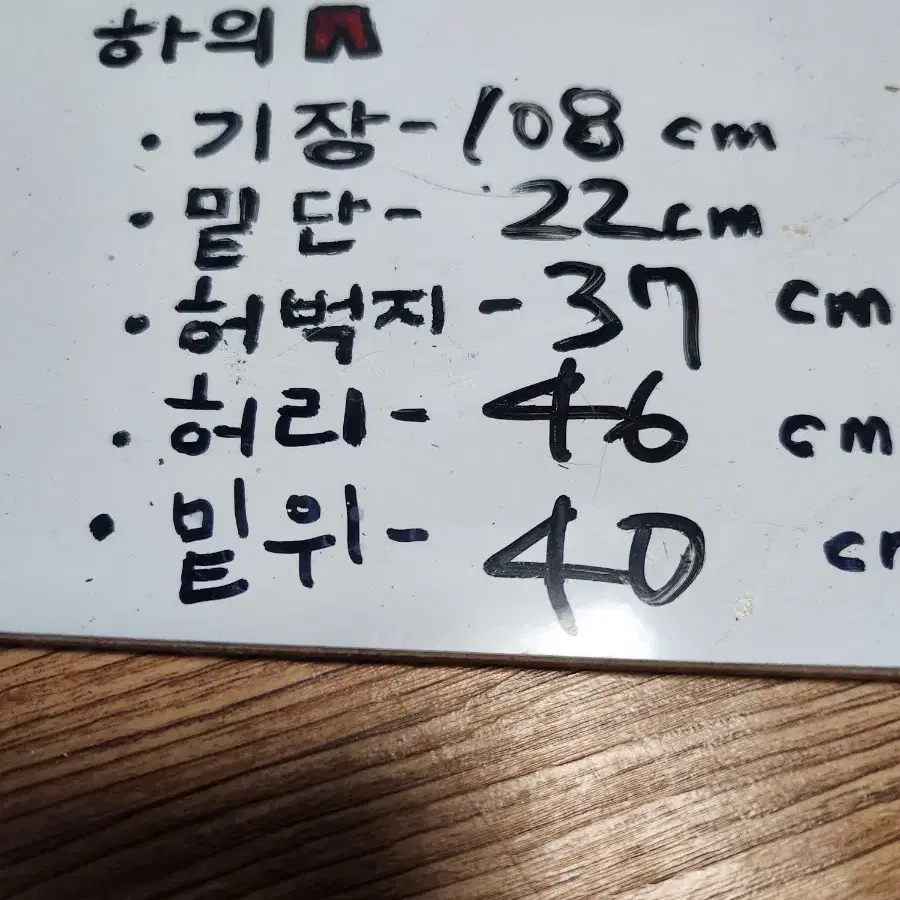 하의
· 기장- 108 cm
· 밑단- 22cm
· 허벅지- 37 cm
· 허리- 46 cm
· 밑위- 40 cm